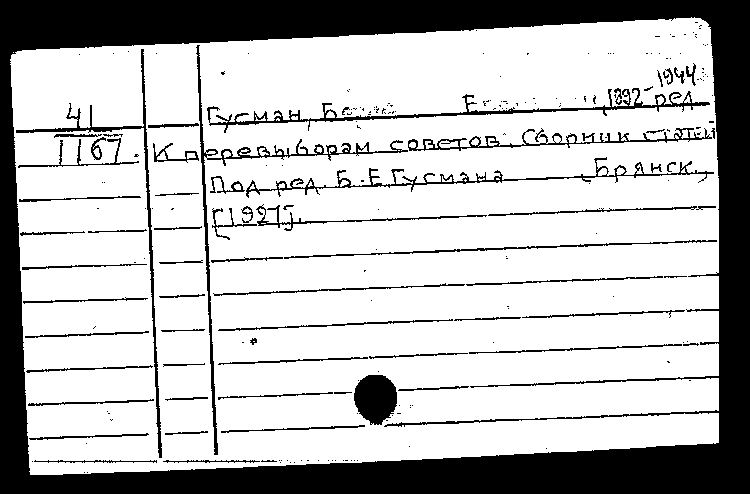 41
1167.
Гусман, Борис Е 1892-1944 ред.
К перевыборам советов. Сборник статей
Под ред. Б. Е. Гусмана Брянск,
[1927].